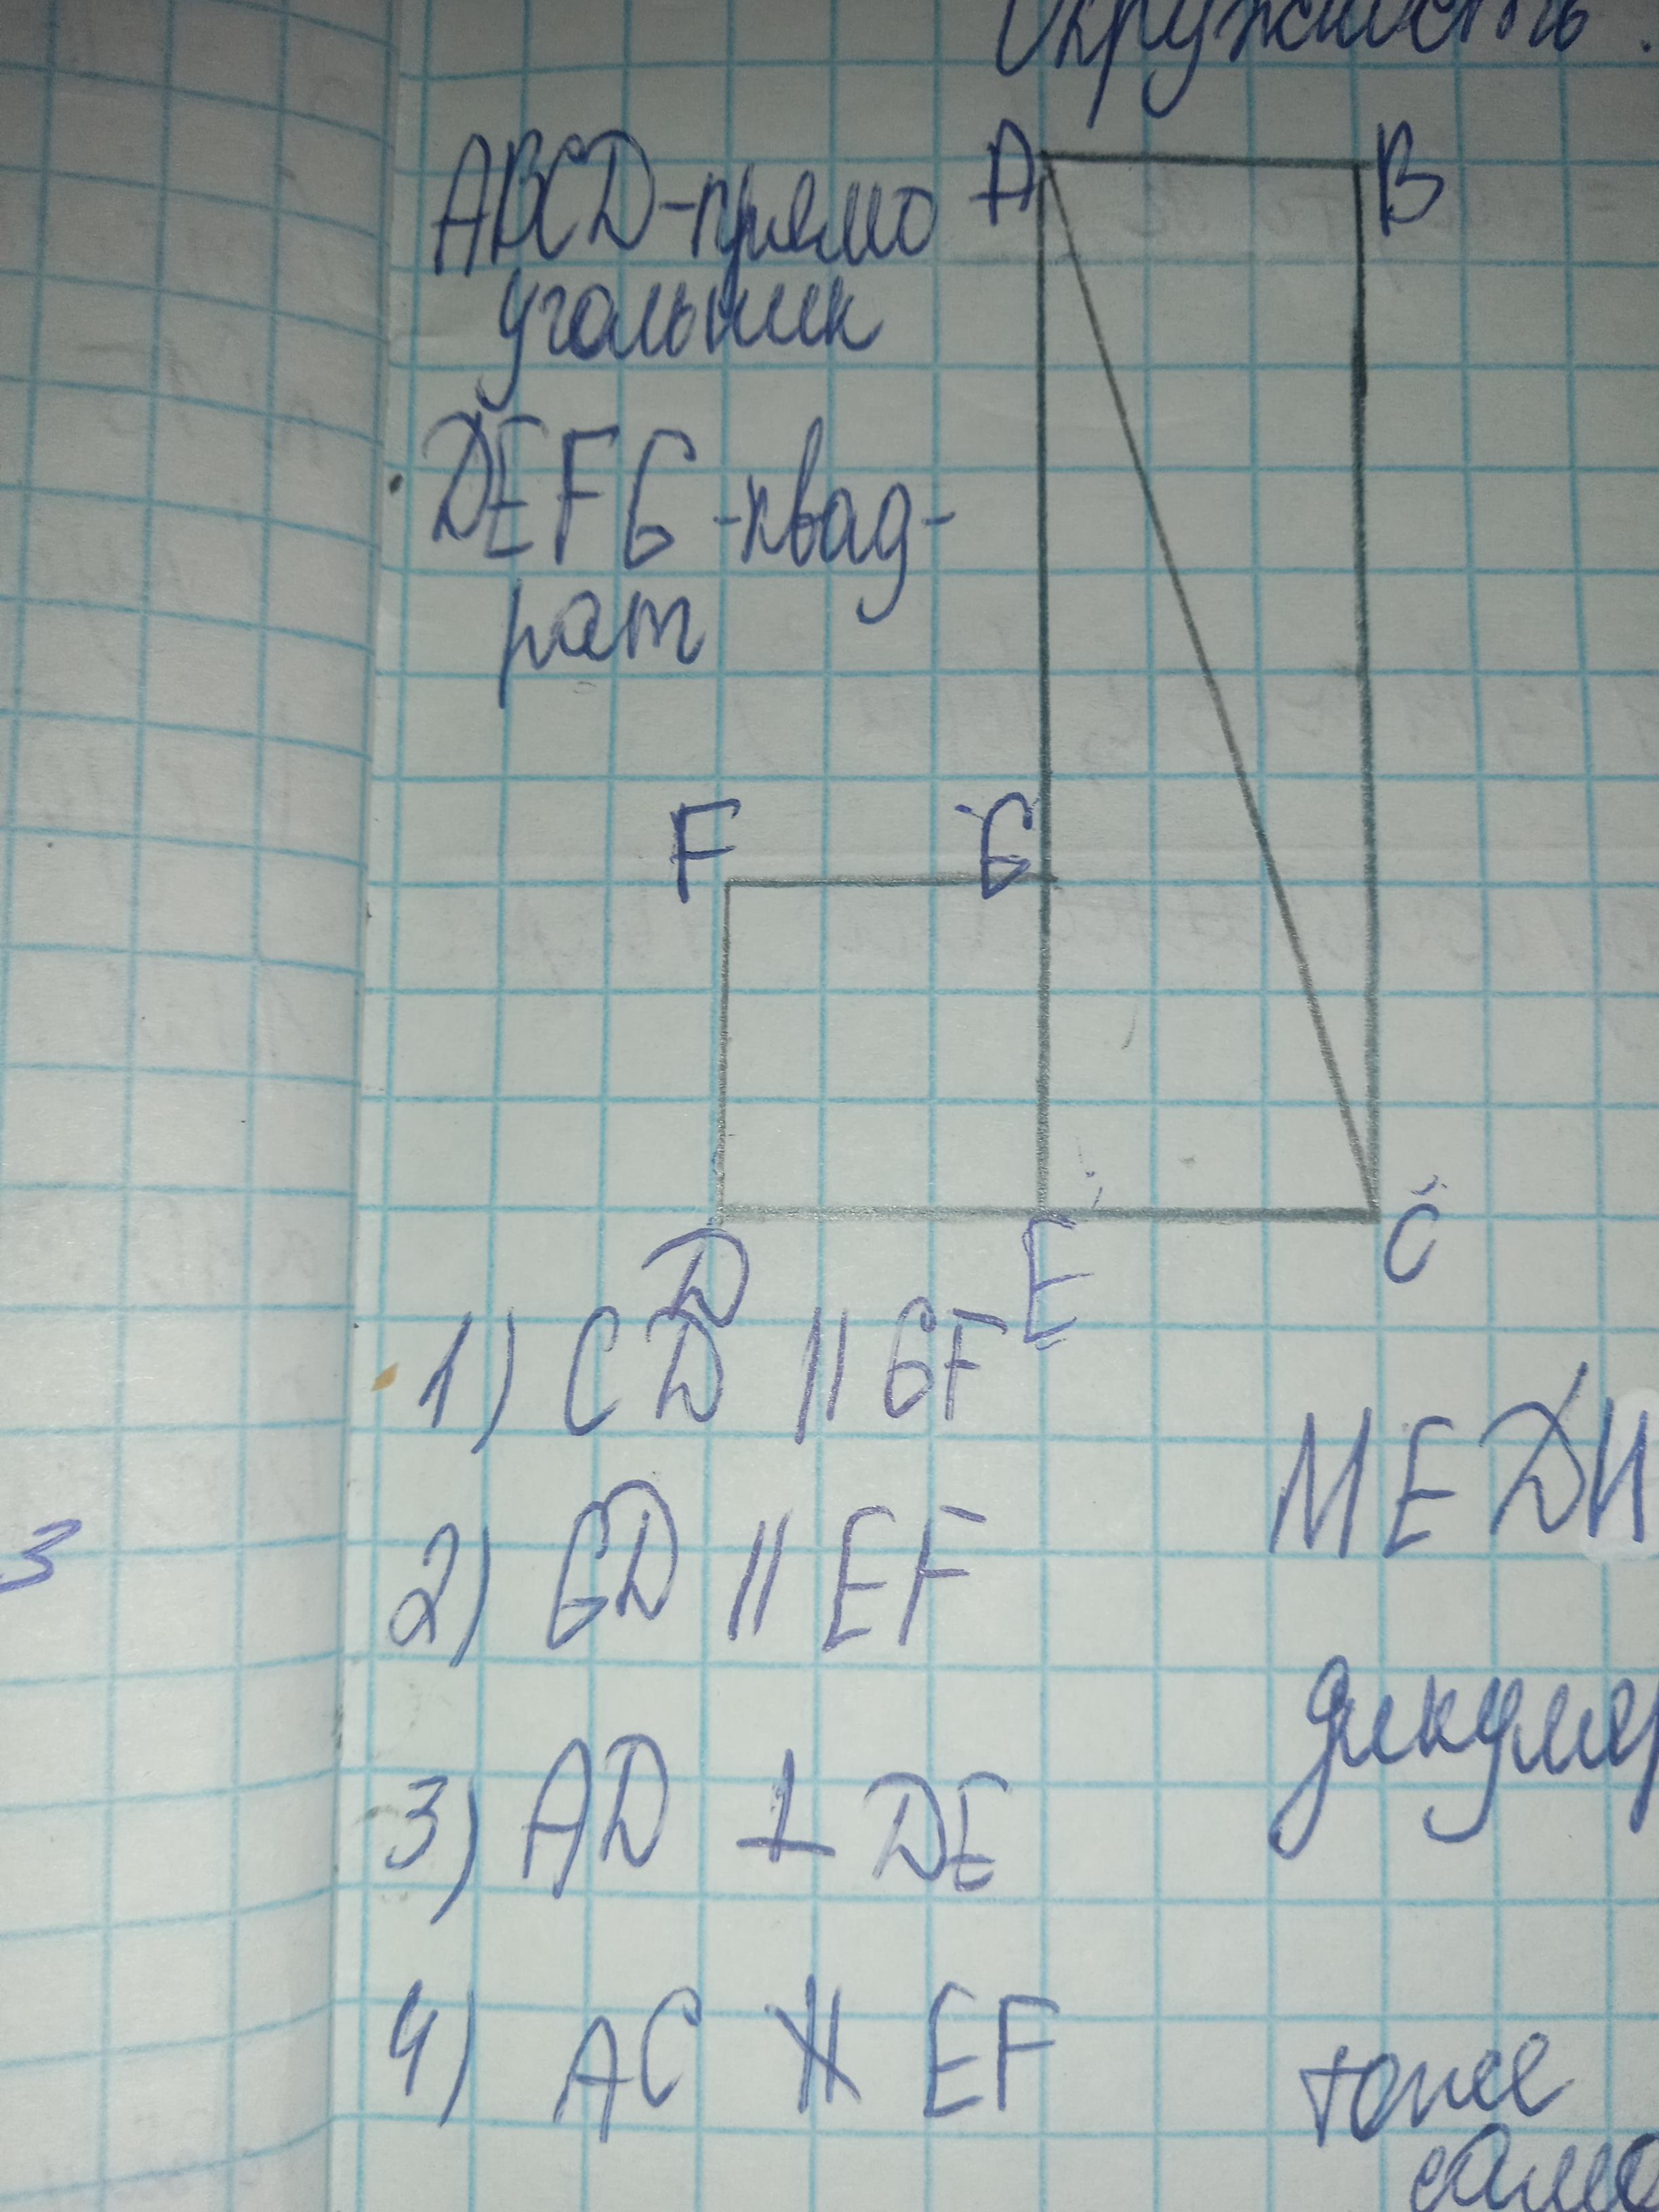 Окружность.
ABCD-прямо
угольник
DEFG-квад-
рат
A
B
F
G
D
E
C
1) CD || GF
2) GD || EF
3) AD ⊥ DE
4) AC ∦ EF
МЕДИ
дикуляр
тоже
само
3